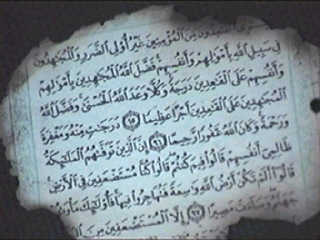 مِنَ الْمُؤْمِنِينَ غَيْرُ أُو۟لِى الضَّرَرِ وَالْمُجَٰهِدُونَ
فِى سَبِيلِ اللَّهِ بِأَمْوَٰلِهِمْ وَأَنفُسِهِمْ فَضَّلَ اللَّهُ الْمُجَٰهِدِينَ بِأَمْوَٰلِهِمْ
وَأَنفُسِهِمْ عَلَى الْقَٰعِدِينَ دَرَجَةً وَكُلًّا وَعَدَ اللَّهُ الْحُسْنَىٰ وَفَضَّلَ اللَّهُ
الْمُجَٰهِدِينَ عَلَى الْقَٰعِدِينَ أَجْرًا عَظِيمًا ٩٥ دَرَجَٰتٍ مِّنْهُ وَمَغْفِرَةً
وَرَحْمَةً وَكَانَ اللَّهُ غَفُورًا رَّحِيمًا ٩٦ إِنَّ الَّذِينَ تَوَفَّىٰهُمُ الْمَلَٰٓئِكَةُ
ظَالِمِىٓ أَنفُسِهِمْ قَالُوا۟ فِيمَ كُنتُمْ قَالُوا۟ كُنَّا مُسْتَضْعَفِينَ فِى الْأَرْضِ
قَالُوٓا۟ أَلَمْ تَكُنْ أَرْضُ اللَّهِ وَٰسِعَةً فَتُهَاجِرُوا۟ فِيهَا فَأُو۟لَٰٓئِكَ مَأْوَىٰهُمْ
جَهَنَّمُ وَسَآءَتْ مَصِيرًا ٩٧ إِلَّا الْمُسْتَضْعَفِينَ مِنَ